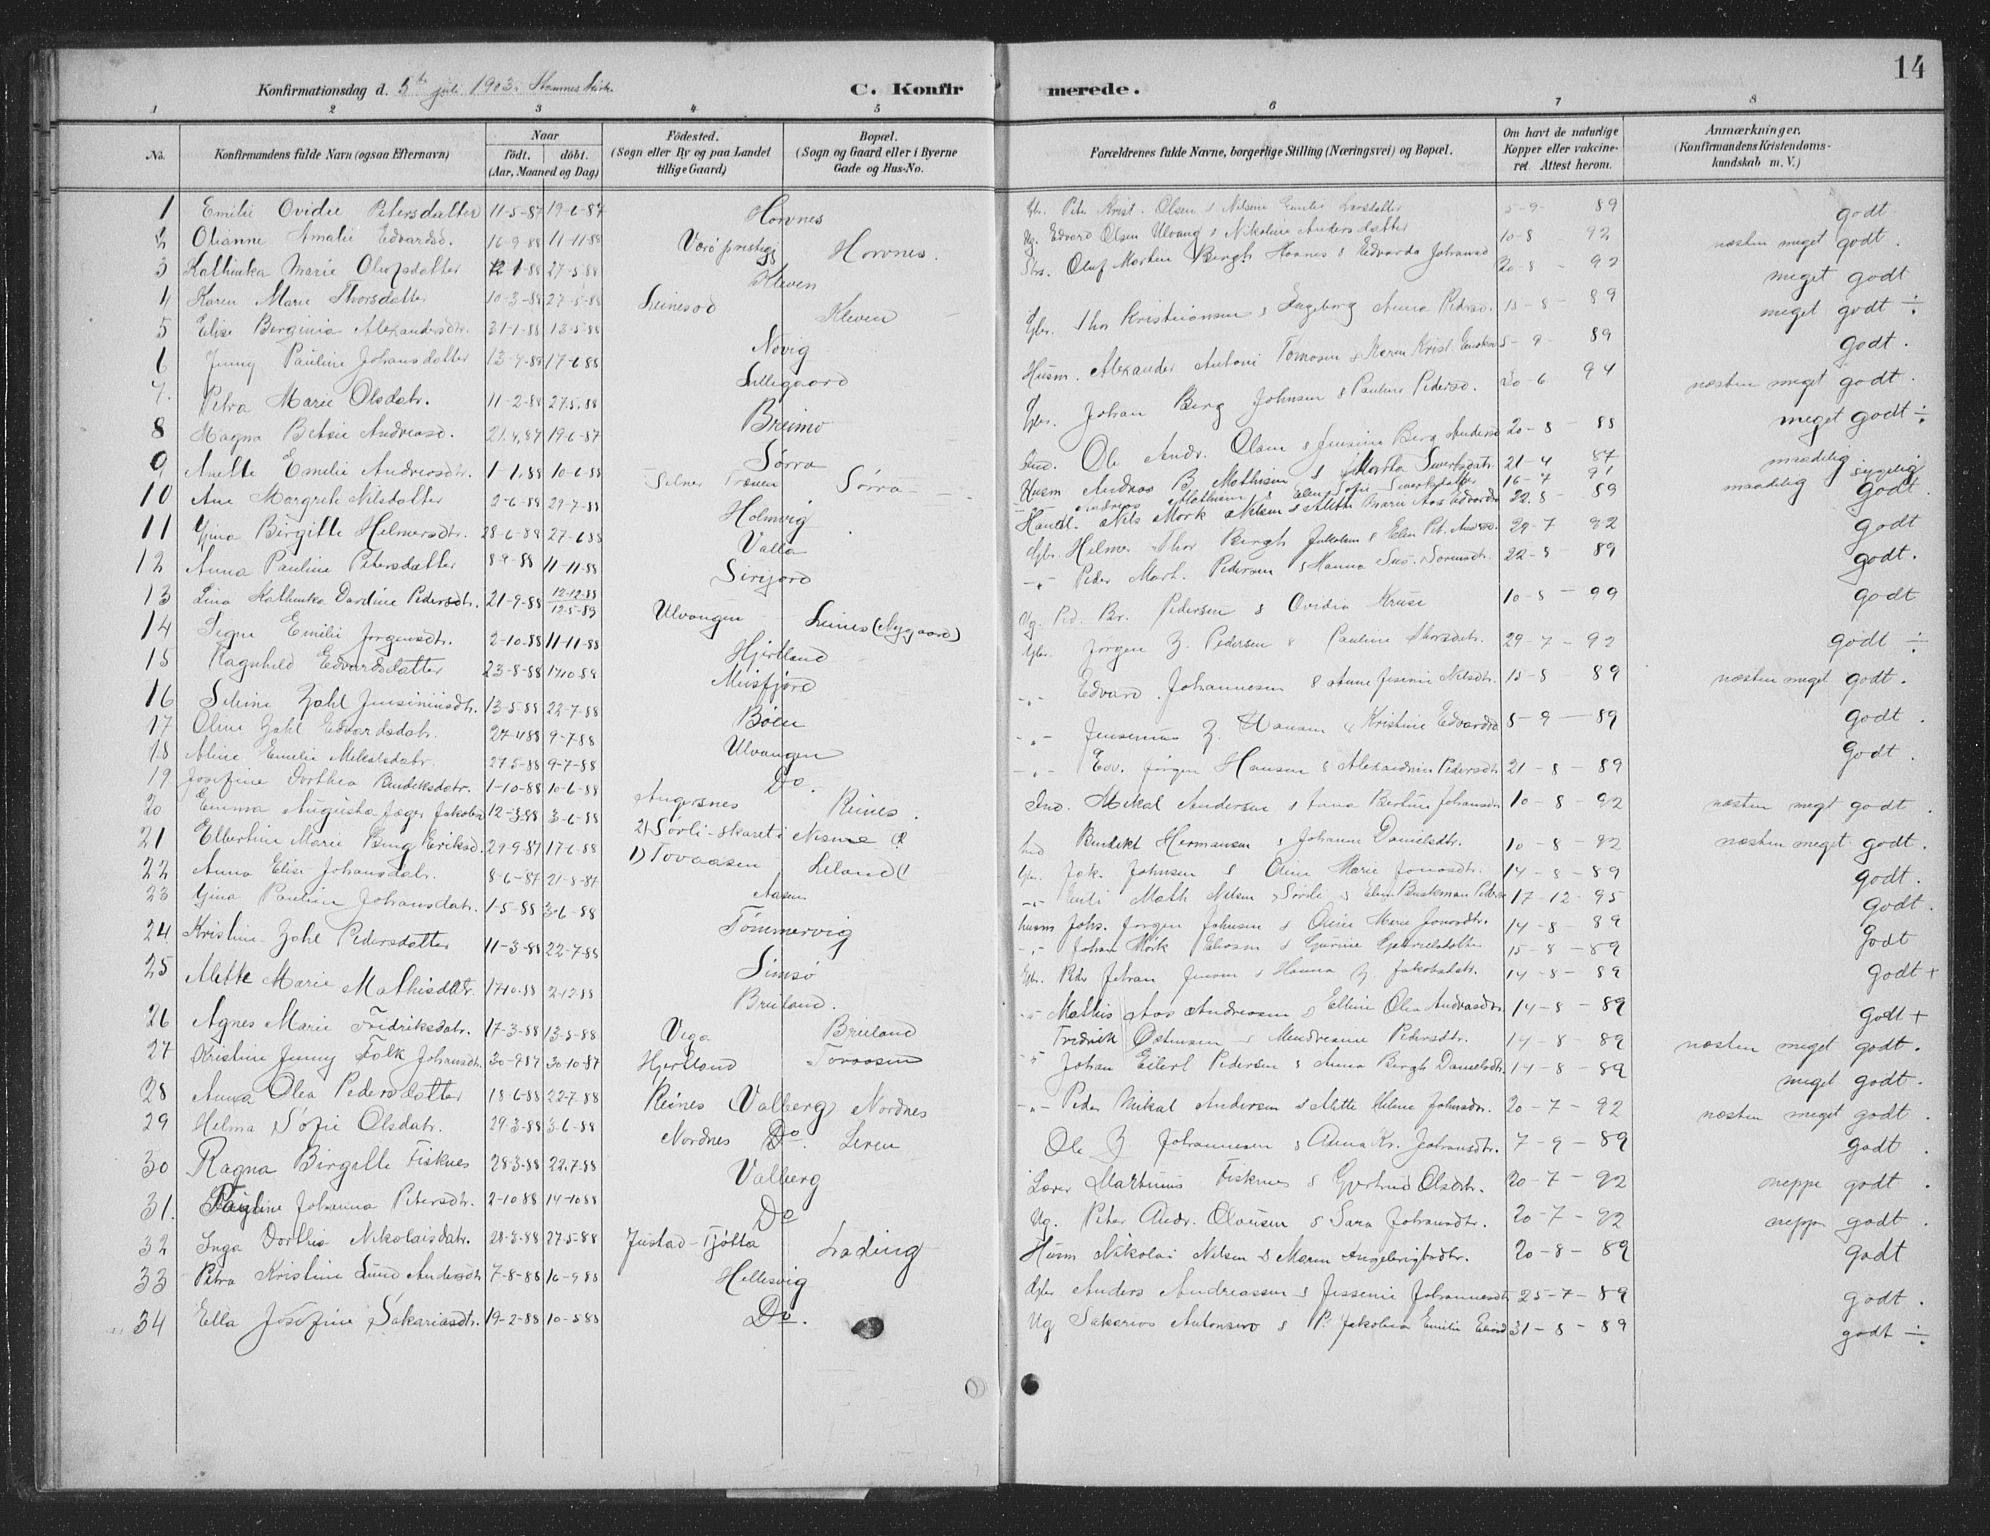 14
Konfirmationsdag d. 5te juli 1903. Stamnes Kirke.
C. Konfirmerede.
1 2 3 4 5 6 7 8
No.
Konfirmandens fulde Navn (ogsaa Efternavn)
Naar
født. døbt.
(Aar, Maaned og Dag)
Födested.
(Sogn eller By og paa Landet
tillige Gaard)
Bopæl.
(Sogn og Gaard eller i Byerne
Gade og Hus-No.
Forældrenes fulde Navne, borgerlige Stilling (Næringsvei) og Bopæl.
Om havt de naturlige
Kopper eller vakcine-
ret Attest herom.
Anmærkninger.
(Konfirmandens Kristendoms-
kundskab m. V.)
1 Emilie Ovidie Petersdatter 11-5-87 19-6-87 Hovnes Gbr. Peter Krist. Olsen & Nilsine Emilie Larsdatter 5-9- 89 godt
2 Olianne Amalie Edvardsd. 16-9-88 11-11-88 Værö præstegj. Hovnes. Ug. Edvard Olsen Ulvang & Nikoline Andersdatter 10-8 92 næsten meget godt.
3 Kathinka Marie Olufsdatter 27-5-88 Kleven Oluf Morten Bergh Hovnes & Edvarda Johansd 20-8 - 92 meget godt
4 Karen Marie Thorsdatter 10-3-88 27-5-88 Leinesod Kleven Gbr. Thor Kristiansen & Ingeborg Anna Pedersd. 15-8-89 meget godt ÷
5 Elise Berginia Alexandersdtr. 31-1-88 13-5-88 Novig Husm. Alexander Antoni Tomasen & Karen Krist. 5-9- 89 godt.
6 Jenny Pauline Johansdatter 17-6-88 Lillegaard Gbr. Johan Berg Johnsen & Pauline Pedersd. 20-6 94 næsten meget godt.
7. Petra Marie Olsdatr. 11-2-88 27.5.88 Breimo Ind. Ole Andr. Olsen & Jensine Berg Andersd 20-8 - 88 meget godt ÷
8 Magna Betsie Andreasd. 21.4.87 19-6-87 Sørra Husm Andreas B. Mathisen & Martha Sivertsdatr. 21-4 87 maadelig
9 Anette Emilie Andreasdtr. 1-1.88 10-6-88 Selnes Trænen Sørra Andreas Mathisen & Elen Sofie Sivertsdatter 16-7 91 maadelig sygelig
10 Ane Margreth Nilsdatter 2-6-88 29-7-88 Holmvig Handl. Nils Mork Nilsen & Alette Marie Aas Edvardsd 22-8 - 89 godt.
11 Gina Birgitte Helmersdtr. 28-6-88 27-6 88 Valla Gbr. Helmer Thor Bergh Jakobsen & Elen Pet. Andersd. 29-7 92 godt
12 Anna Pauline Petersdatter 8-9-88 11-11-88 Sirijord -"- Peder Mart. Pedersen & Hanna Sus. Sørensdtr. 22-8 89 godt.
13 Lina Kathinka Dardine Pedersdtr. 21-9-88 12-12-88 12-5-89 Ulvangen Leines (Nygaard) Ug. Ped. Br. Pedersen & Ovidia Kruse 10-8 - 99 godt
14 Signe Emilie Jørgensdtr. 2-10-88 11-11-88 Hjertland Gbr. Jørgen Z. Pedersen & Pauline Thorsdatr. 29-7-92 godt ÷
15 Ragnhild Edvardsdatter 23-8-88 14-10-88 Meisfjord -"- Edvard Johannesen & Anne Jesenie Nilsdtr. 15-8 89 næsten meget godt.
16 Seline Zahl Jensiniusdtr. 13-5-88 22-7-88 Bøen -"- Jensenius Z. Hansen & Kristine Edvardsd 5-9-89 godt.
17 Oline Zahl Edvardsdatr. 24-4 88 9-7-88 Ulvangen -"- Edv. Jørgen Hansen & Alexandrine Pedersdtr 21-8-89 Godt.
18 Aline Emilie Mikalsdatr. 27.5-88 9-7-88 Do. Ind. Mikal Andersen & Anna Bertine Johansdtr 10-8-92 næsten megt godt.
19 Josefine Dorthea Bendiksdatr. 1-10-88 10-6-88 Angersnes Reines. Ind Bendikt Hermansen & Johanne Danielsdtr. 10-8-92 næsten meget godt.
20 Emma Augusta Jæger Jakobsd 12-3-88 3-6-88 2) Sørli-skaret i Nesne (2 Gbr. Jak. Johnsen & Oline Marie Jonasdtr. 14-8-89 godt.
21 Elbertine Marie Bing Eriksd. 29-9-87 17-6-88 1) Tovaasen Leland (1 -"- Math Nilsen Sørli & Elen Buskman Peders 17-12-95 godt.
22 Anna Elise Johansdatr. 8-6-87 21-8-87 Aasen husm Johs. Jørgen Johnsen & Oline Marie Jonasdtr. 14-8 89 Godt
23 Gina Pauline Johansdatr. 1-5-88 3-6-88 Tømmervig -"- Johan Mørk Eliasen & Gurine Gabrielsdatter 15-8-89
24 Kristine Zahl Pedersdatter 11-3-88 22-7-88 Simsø Gbr. Peder Johan Jensen & Hanna Z. Jakobsdtr. 14-8-89 godt +
25 Alette Marie Mathisdatr. 17-10-88 2-12-88 Breiland. -"- Mathis Aas Andreasen & Elline Olea Andreasdtr 14-8-89 godt +
26 Agnes Marie Fredriksdatr. 17-3-88 13-5-88 Vega Breiland Fredrik Østensen & Pedersdtr. 14-8 89 næsten meget godt.
27 Kristine Jenny Falk Johansdtr. 30-9-87 30-10-87 Hjertland Tovaasen -"- Johan Eilert Pedersen & Anna Bergh Danielsdtr 14-8-89 meget godt.
28 Anna Olea Pedersdatter 18-6-88 22-7-88 Reines Valberg Nordnes -"- Peder Mikal Andersen & Alette Helene Johnsdtr. 20-7-92 næsten meget godt.
29 Helma Sofie Olsdatr. 29-3-88 3-6-88 Nordnes Do. Leren Ole Z. Johannesen & Anna Kr. Johansdtr. 7-9-89 godt.
30 Ragna Birgitte Fisknes 28-3-88 22.7-88 Valberg Lærer Martinus Fisknes & Gjertrud Olsdtr. 20-7-92 neppe godt.
31. Pauline Johanna Petersdtr. 2-10 88 14-10 88 Do Ug. Peter Andr. Olausen & Sara Johansdtr. 20-7-92 neppe godt.
32 Inga Dorthea Nikolaisdatr. 28-3-88 27-5-88 Justad-Tjøtta Lading Husm Nikolai Nilsen & Maren Ingebrigtsdtr. 20-8-89 godt
33 Petra Kristine Lund Andersdtr 7-8-88 16-9 88 Hellesvig Gbr Anders Andreassen & Jessenie Johannesdtr 25-7-89 godt.
34 Ella Josefine Sakariasdtr. 19-2-88 10-5 88 Do. Ug Sakarias Antonsen & P. Jakobea Emilie 31-8-89 godt ÷